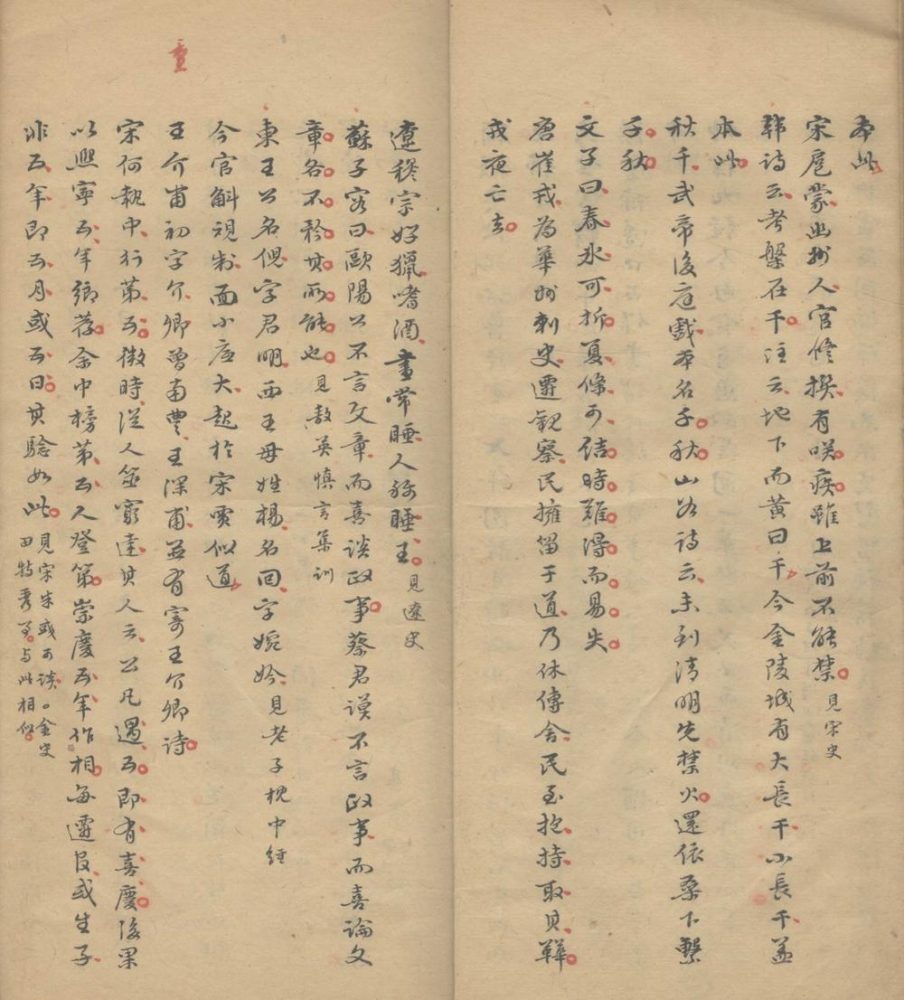 本此
宋扈蒙幽州人官修撰有咲疾雖上前不能禁見宋史
韩诗云考槃在干注云地下而黄曰干今金陵城有大長干小長干盖
本此
秋千武帝後庭戲本名千秋山谷诗云未到清明先禁火還依桑下繫
千秋
文子曰春氷可折夏條可结時難得而易失
唐崔戎為華州刺史遷觀察民擁留于道乃休傳舍民至抱持取其鞾
戎夜亡去
遼穆宗好獵嗜酒晝常睡人称睡王見遼史
蘇子容曰歐陽公不言文章而喜谈政事蔡君谟不言政事而喜論文
章各不矜其所能也見敖英慎言集训
東王公名倪字君明西王母姓楊名回字婉妗見老子枕中經
今官斛規制面小底大起於宋贾似道
王介甫初字介卿曾南豐王深甫並有寄王介卿诗
宋何執中行第五微時從人筮窮達其人云公凡遇五即有喜慶後果
以熙寧五年鄉荐余中榜第五人登第崇慶五年作相每遷官或生子
非五年即五月或五日其驗如此見宋朱彧可談金史
田特秀事与此相似